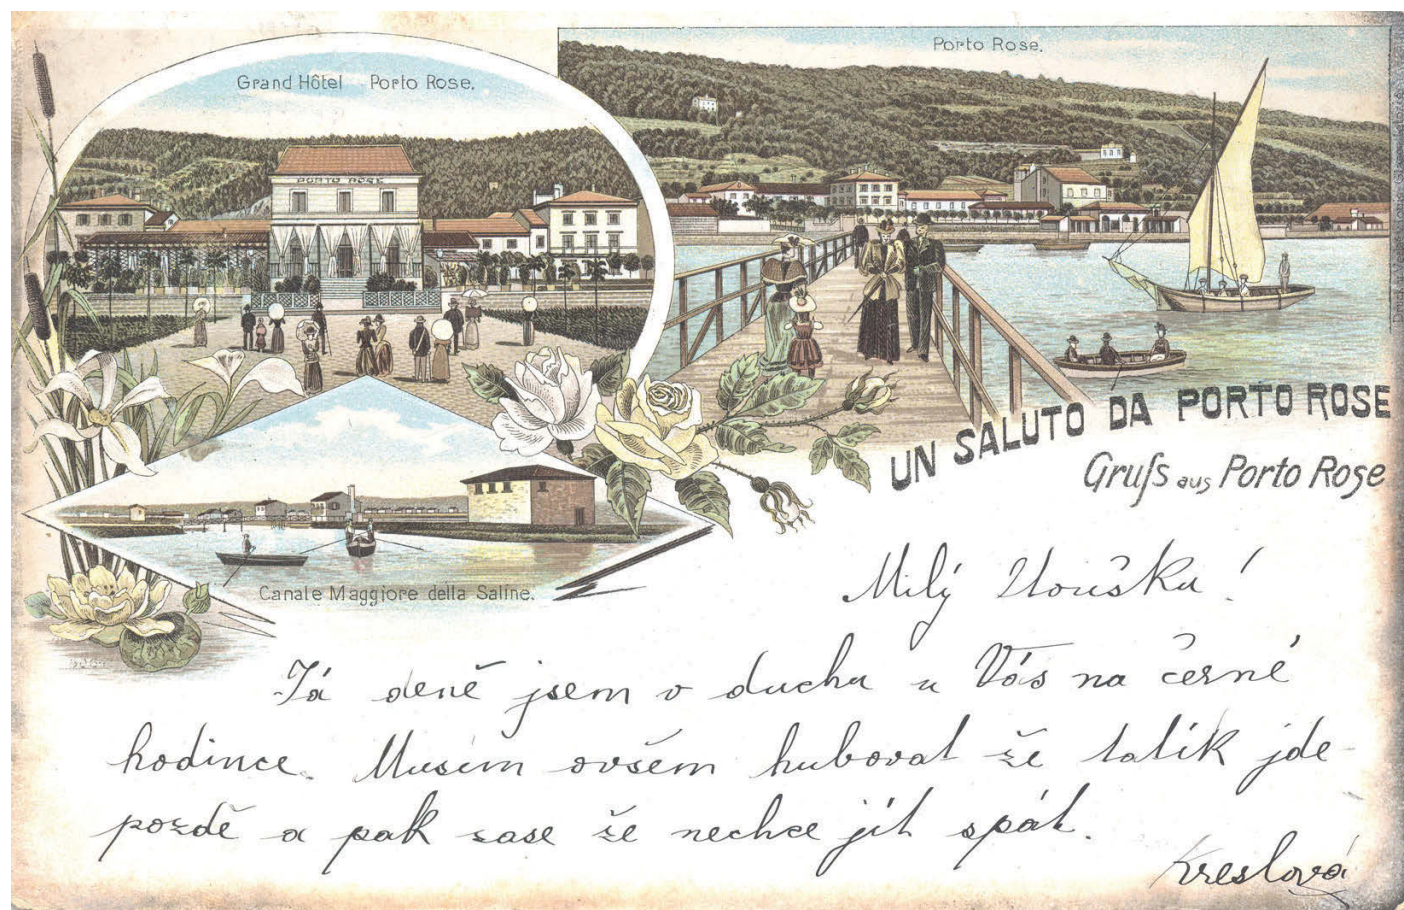 Grand Hôtel Porto Rose.
PORTO ROSE
Porto Rose.
Canale Maggiore della Saline.
UN SALUTO DA PORTO ROSE
Gruſs aus Porto Rose
Milý
Já deně jsem v duchu u Vás na černé
hodince. Musím ovšem hubovat že tatík jde
pozdě a pak zase že nechce jít spát.
Kreslová